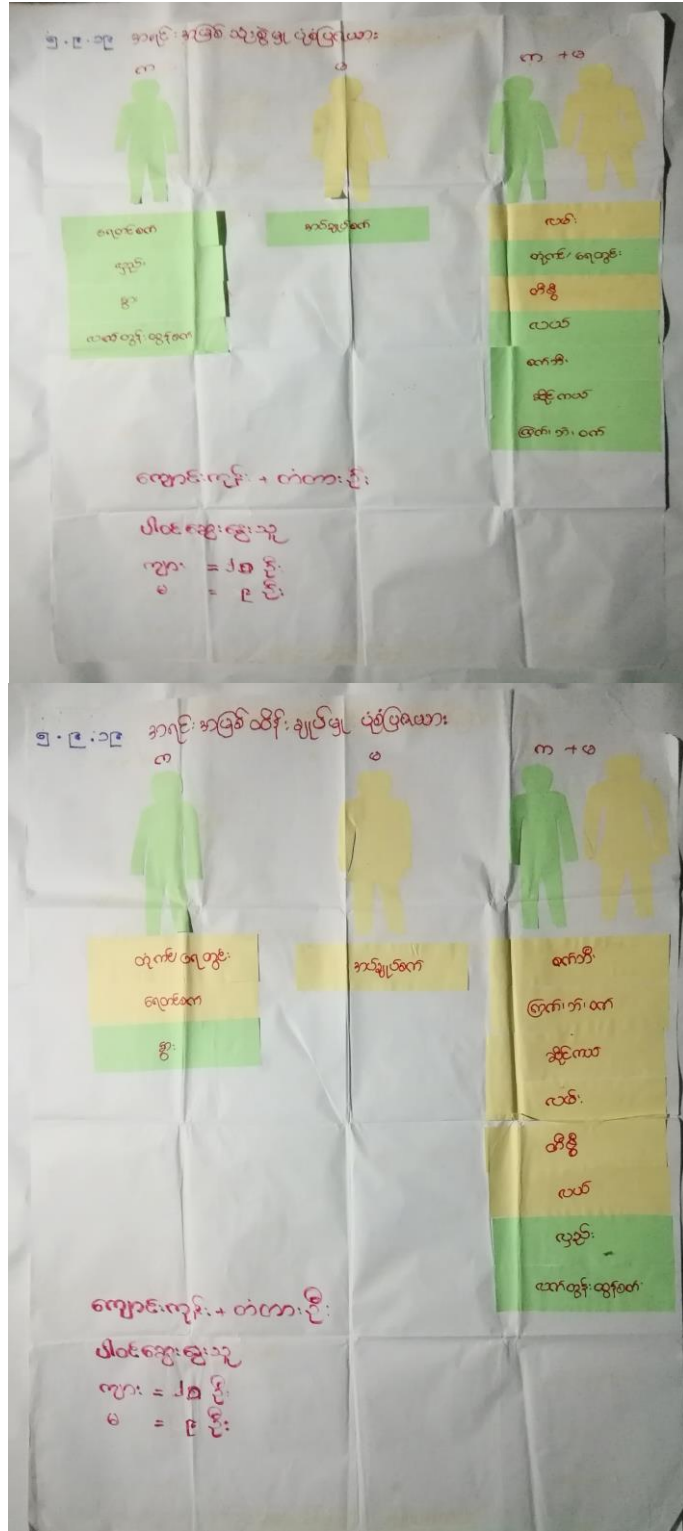 ၅.၉.၁၉ အရင်းအမြစ် သုံးစွဲမှု ပုံစံပြဇယား
က
မ
က + မ
ရေတင်စက်
လှည်း
နွား
လက်တွန်းထွန်စက်
အပ်ချုပ်စက်
လမ်း
တုံကင်/ရေတွင်း
တီဗွီ
လယ်
စက်ဘီး
ဆိုင်ကယ်
ကြက်၊ဘဲ၊ဝက်
ကျောင်းကုန်း + တံတားဦး
ပါဝင်ဆွေးနွေးသူ
ကျား =
မ = ၉ ဦး
၅.၉.၁၉ အရင်းအမြစ်ထိန်းချုပ်မှု ပုံစံပြဇယား
က
မ
က + မ
တုံကင်/ရေတွင်း
ရေတင်စက်
နွား
အပ်ချုပ်စက်
စက်ဘီး
ကြက်၊ဘဲ၊ဝက်
ဆိုင်ကယ်
လမ်း
တီဗွီ
လယ်
လှည်း
လက်တွန်းထွန်စက်
ကျောင်းကုန်း + တံတားဦး
ပါဝင်ဆွေးနွေးသူ
ကျား =
မ = ၉ ဦး